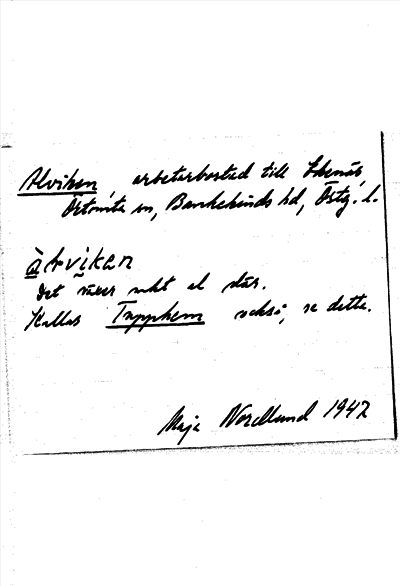 Alviken, arbetarbostad till Ekenäs,
Örtomta sn, Bankekinds hd, Östg. l.
àlviken
Det växer mkt al där.
Kallas Trapphem också, se detta.
Maja Nordlund 1947